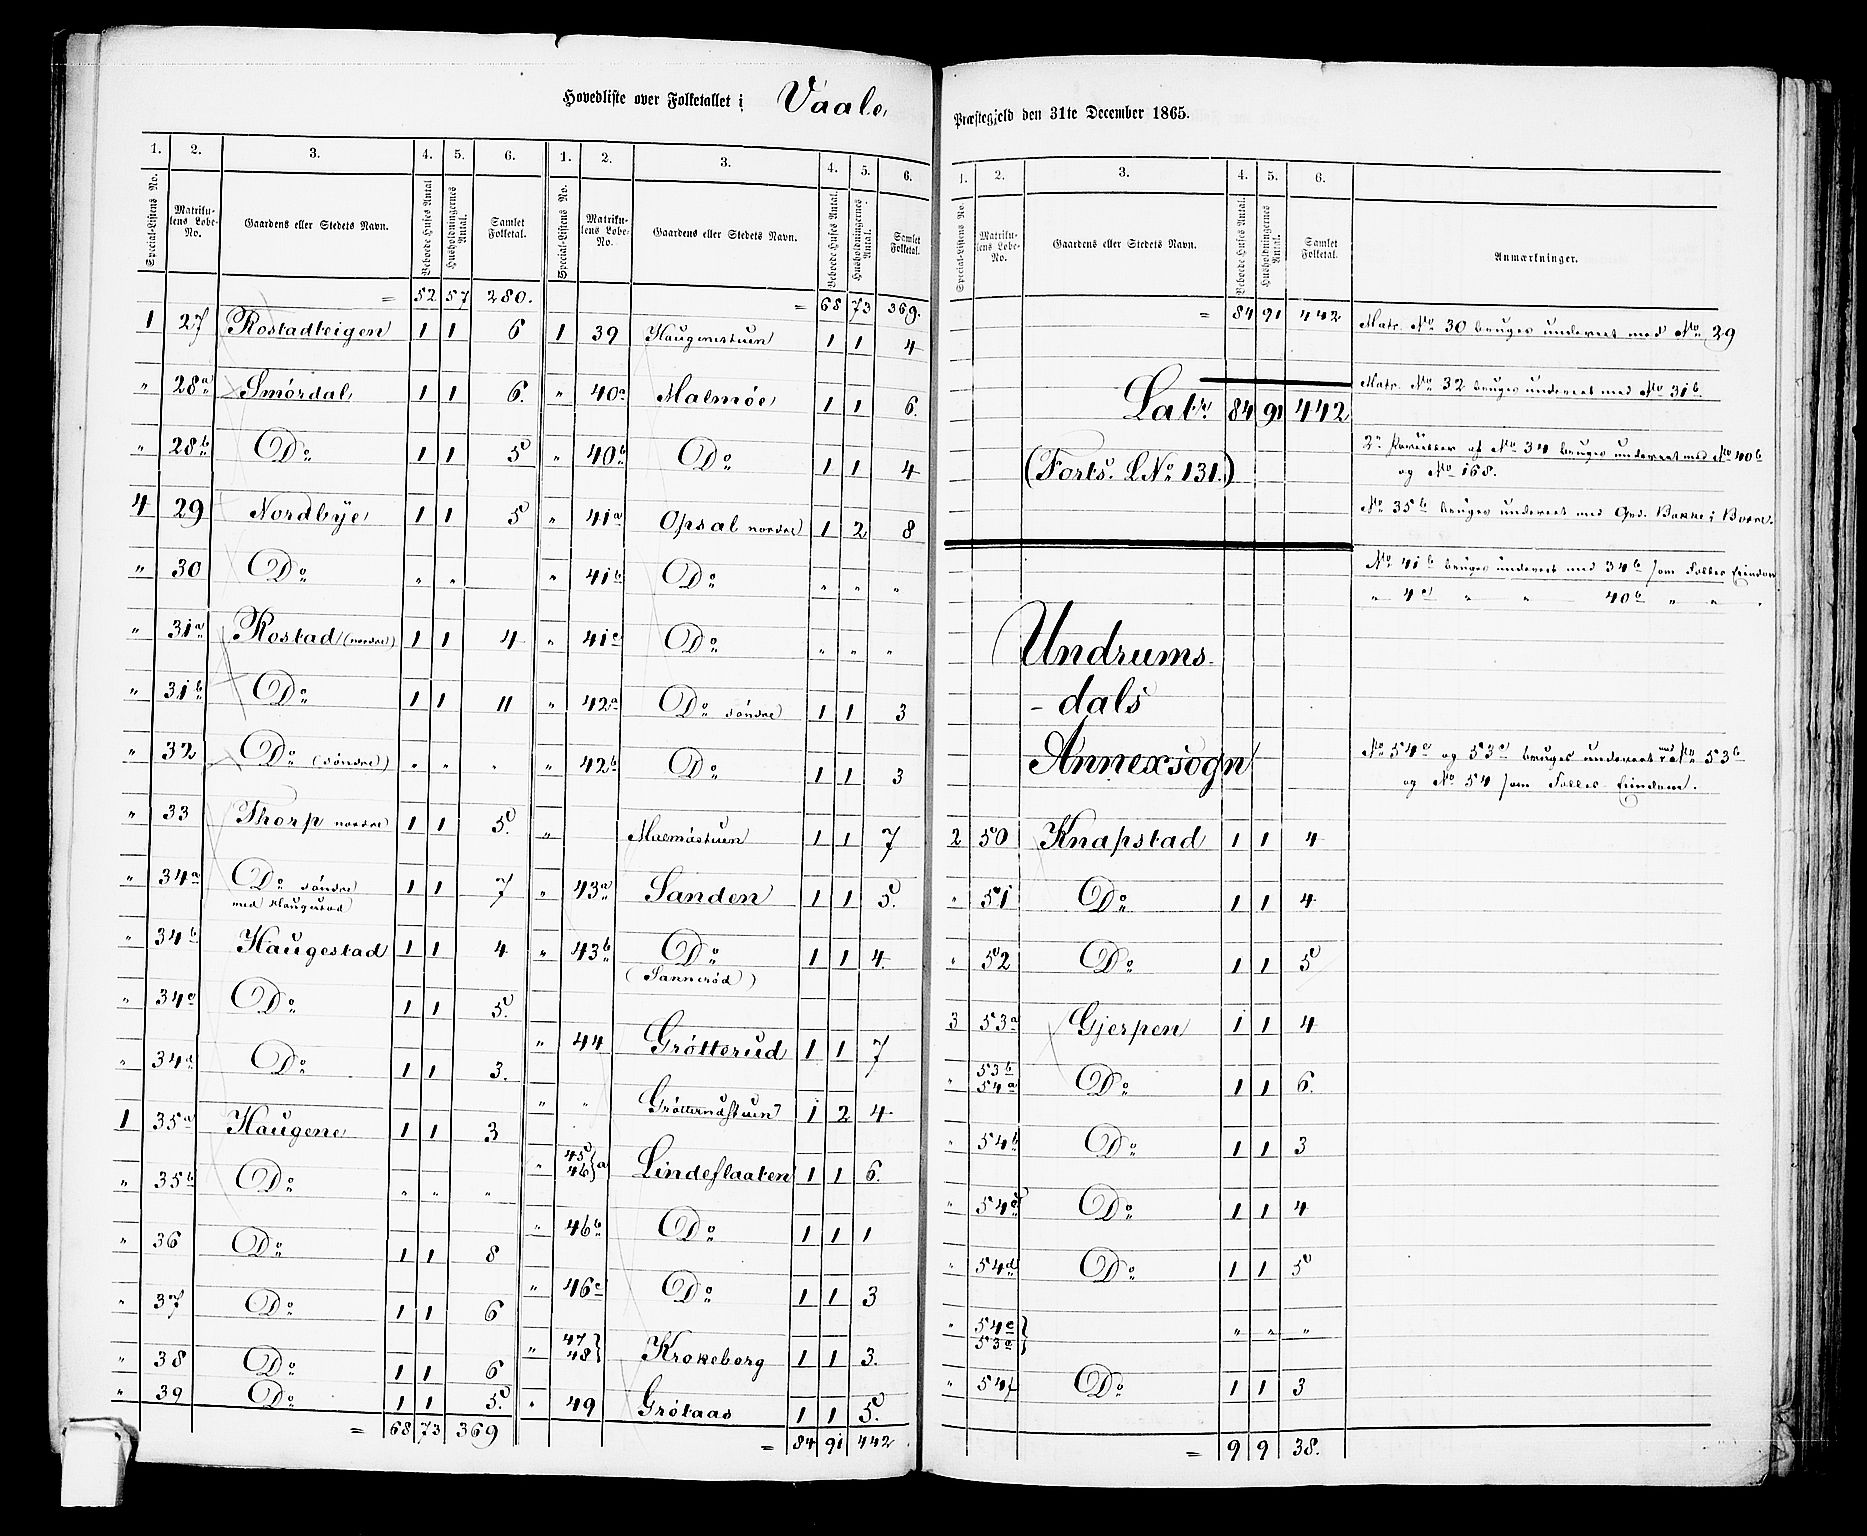 Hovedliste over Folketallet i Vaale Præstegjeld den 31te December 1865.
1. 2. 3. 4. 5. 6.
Special-Listens No. Matrikulens Løbe-No. Gaardens eller Stedets Navn. Beboede Huses Antal Husholdningernes Antal. Samlet Folketal.
= 52 57 280.
1 27 Rostadteigen 1 1 6
" 28a Smørdal 1 1 6.
" 28b Do 1 1 5
4 29 Nordbye 1 1 5
" 30 Do " "
" 31a Rostad (nordre) 1 1 4
" 31b Do 1 1 11
" 32 Do (søndre) " " "
" 33 Thorp nordre 1 1 5.
" 34a Do søndre 1 1 7
med Haugestad
" 34b Haugestad 1 1 4
" 34c Do 1 1 5.
" 34d Do 1 1 3.
1 35a Haugene 1 1 3
" 35b Do " " "
" 36 Do 1 1 8
" 37 Do 1 1 6
" 38 Do 1 1 6
" 39 Do 1 1 5.
= 68 73 369
1. 2. 3. 4. 5. 6.
Special-Listens No. Matrikulens Løbe-No. Gaardens eller Stedets Navn. Beboede Huses Antal. Husholdningernes Antal. Samlet Folketal.
= 68 73 369.
1 39 Haugenestuen 1 1 4
" 40a Malmøe 1 1 6.
" 40b Do 1 1 4
" 41a Opsal nordre 1 2 8
" 41b Do " " "
" 41c Do " " "
" 42a Do søndre 1 1 3
" 42b Do 1 1 3
" Malmøstuen 1 1 7
" 43a Sanden 1 1 5.
" 43b Do 1 1 4.
(Sannerød)
" 44 Grøtterud 1 1 7
" " Grøtterudstuen 1 2 4
" 45 46 } a Lindeflaaten 1 1 6.
" 46b Do 1 1 1
" 46c Do 1 1 3
" 47 48 } Krokeborg 1 1 3.
" 49 Grøtaas 1 1 5.
= 84 91 442.
1. 2. 3. 4. 5. 6.
Special-Listens No. Matrikulens Løbe-No. Gaardens eller Stedets Navn. Beboede Huses Antal. Husholdningernes Antal. Samlet Folketal. Anmærkninger.
= 84 91 442
Lats 84 91 442
(Forts. LNo 131.)
Undrums
-dals
Annexsogn
2 50 Knapstad 1 1 4
" 51 Do 1 1 4
" 52 Do 1 1 5
3 53a Gjerpen 1 1 4
" 53b 54a Do 1 1 6.
" 54b Do 1 1 3
" 54c Do 1 1 4
" 54d Do 1 1 5
" 54e 53c } " " "
" 54f Do 1 1 3
= 9 9 38.
Matr. No 30 bruges undereet med No 29
Matr. No 32 bruges undereet med No 31b
af No 34 bruges undereet med No 40b
og No 168.
No 35b bruges undereet med Grd. Bakke i Borre.
No 41b bruges undereet med 34b som Fælles Eiendom
" 41 " " 40b " " "
No 54e og 53c bruges undereet med No 53b
og No 54 som Fælles Eiendom.